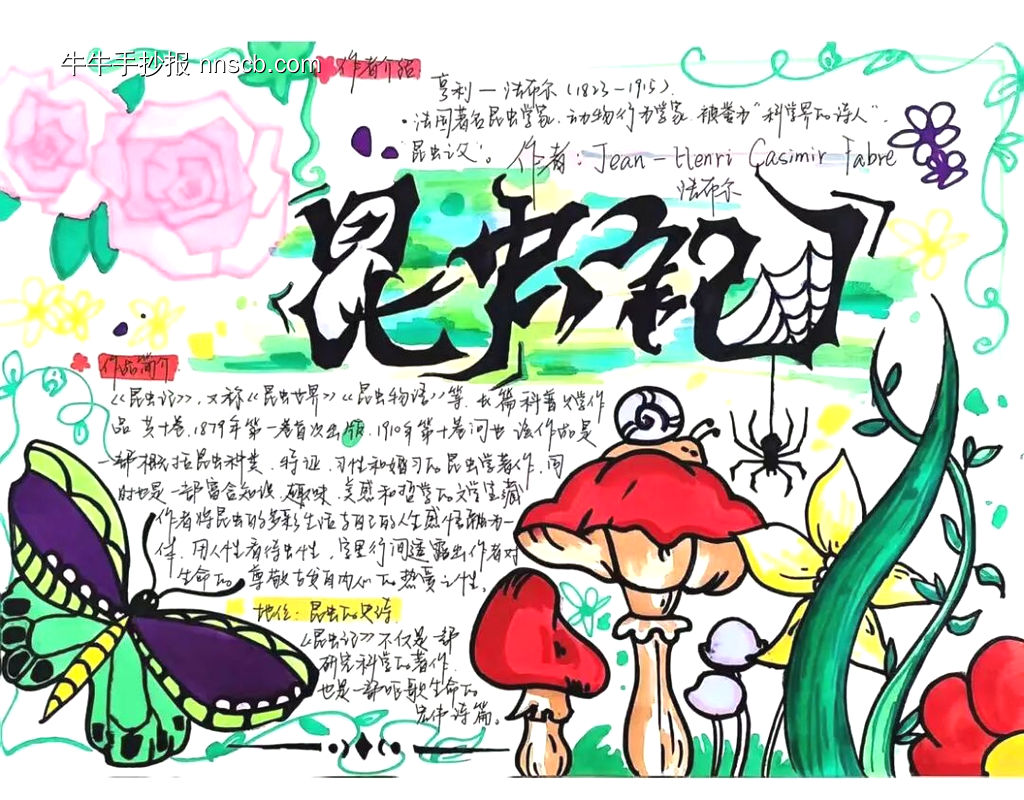 牛牛手抄报 nnscb.com
作者介绍
亨利一法布尔(1823-1915).
·法国著名昆虫学家.动物行为学家.被誉为"科学界的诗人".
"昆虫记"。作者:Jean-Henri Casimir Fabre
法布尔
昆虫记
作品简介
《昆虫记》,又称《昆虫世界》《昆虫物语》等.长篇科普文学作
品 共十卷.1879年第一卷首次出版.1910年第十卷问世 该作品是
一部概括昆虫种类、特征、习性和婚习的昆虫学著作,同
时也是一部富含知识、趣味、美感和哲学的文学宝藏
作者将昆虫的多彩生活与自己的人生感悟融为一
体.用人性看待虫性,字里行间透露出作者对
生命的尊敬与
热爱之性。
地位:昆虫的史诗.
《昆虫记》不仅是一部
研究科学的著作.
也是一部呕歌生命的
宏伟诗篇。